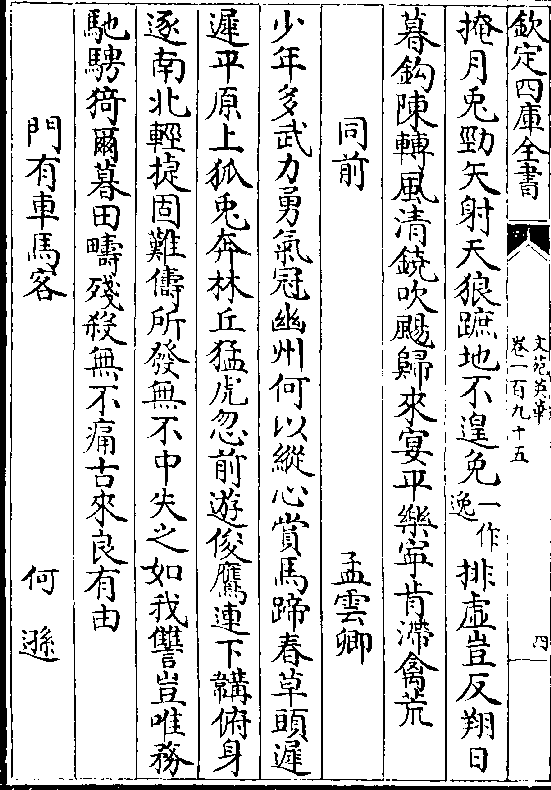 欽定四庫全書
文苑英華
卷一百九十五
四
掩月兎勁矢射天狼蹠地不遑免一作逸排虛豈反翔日
暮鈎陳轉風清鐃吹颺歸來宴平樂寜肯滯禽荒
同前 孟雲卿
少年多武力勇氣冠幽州何以縱心賞馬蹄春草頭遲
遲平原上狐兎奔林丘猛虎忽前遊俊鷹連下韝俯身
逐南北輕捷固難儔所發無不中失之如我讐豈唯務
馳騁猗爾暮田疇殘殺無不痛古來良有由
門有車馬客 何遜